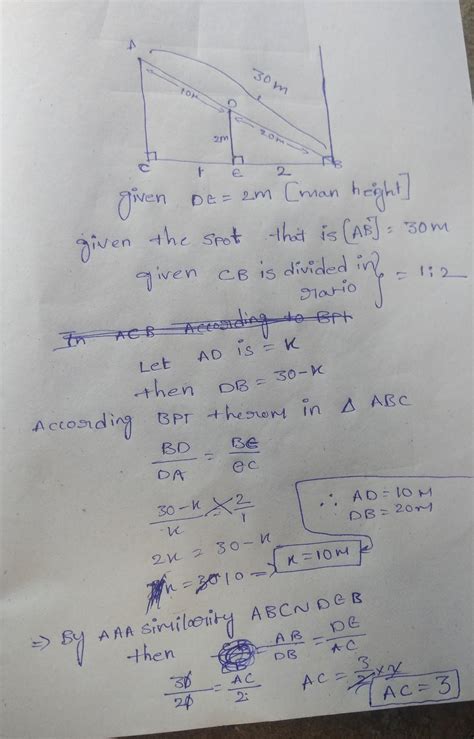 A
30m
10m
D
2m
20m
C
E
B
1
2
given DE = 2m [man height]
given the spot that is [AB] = 30m
given CB is divided in
ratio } = 1:2
In ACB According to BPT
Let AD is = K
then DB = 30-K
According BPT therom in Δ ABC
BD/DA = BE/EC
30-K/K = 2/1
∴ AD = 10M
DB = 20M
2K = 30-K
K = 10 => K = 10M
=> By AAA similarity ABC ~ DEB
then AB/DB = DE/AC
30/20 = AC/2
AC = 3/2 × 2
AC = 3